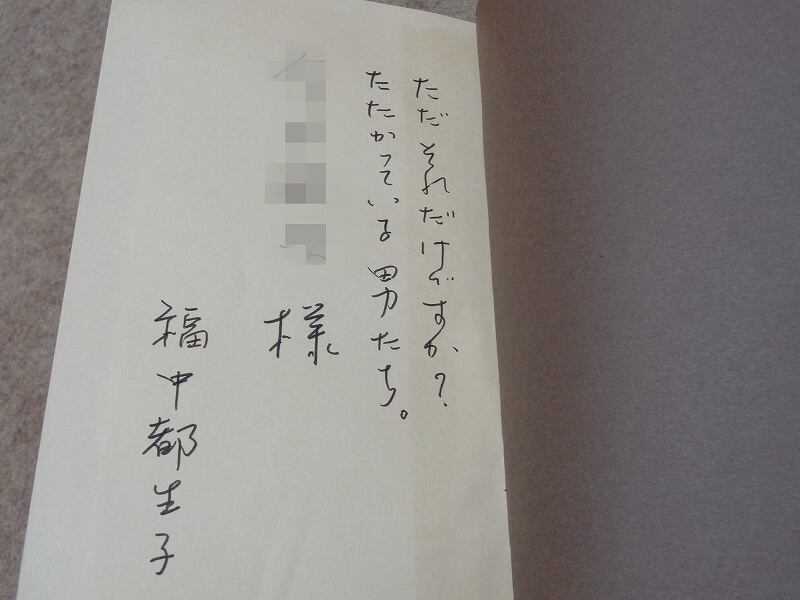 ただそれだけですか?
たたかっている男たち。
様
福中都生子